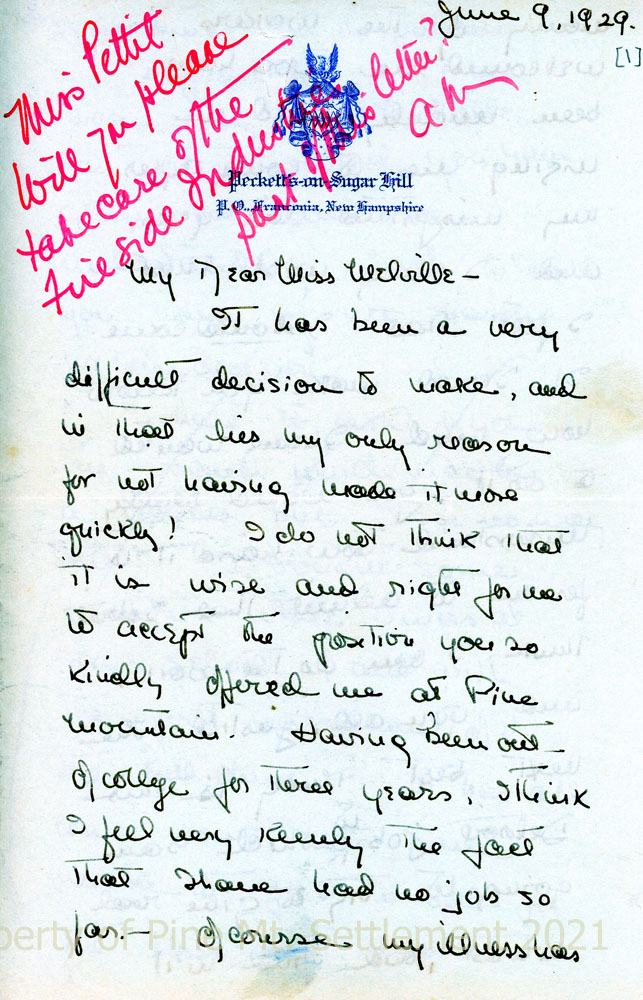 June 9, 1929.
[1]
Miss Pettit
Will you please
take care of the
Fireside Industries
part of this letter?
am
Peckett's-on-Sugar Hill
P.O., Franconia, New Hampshire
My Dear Miss Melville –
It has been a very
difficult decision to make, and
in that lies my only reason
for not having made it more
quickly! I do not think that
it is wise and right for me
to accept the position you so
kindly offered me at Pine
Mountain. Having been out
of college for three years, I think
I feel very keenly the fact
that I have had no job so
far. – Of course my illness has
perty of Pine Mtn Settlement 2021